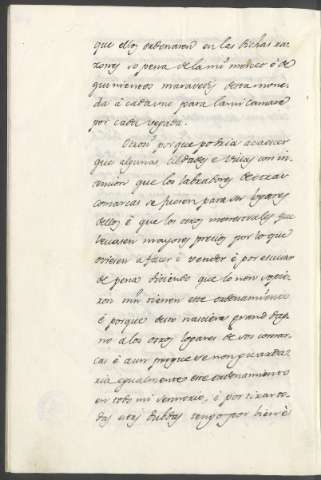 que ellos ordenaren en las dichas ra-
zones so pena de la mi merced é de
quinientos maravedis desta mone-
da á cada uno para la mi camara
por cada vegada.
Otrosi porque podria acaescer
que algunas Cibdades e Villas con in-
tencion que los labradores de otras
comarcas se fuesen para sus logares
dellos é que los otros menestrales que
levasen mayores precios por lo que
oviesen a facer é vender é por escusar
de pena diciendo que lo non sopie-
ron nin vieron este ordenamiento
é porque desto nasceria grand dap-
no a los otros logares de sus comar-
cas é aun porque se non guardar-
ria egualmente este ordenamiento
en todo mi sennorio, é por tirar to-
das estas dubdas tengo por bien é